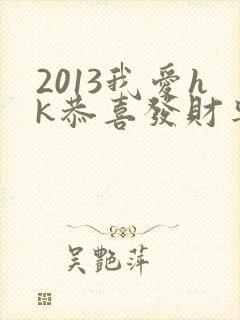 2013我愛h
k恭喜發財
吳艷萍